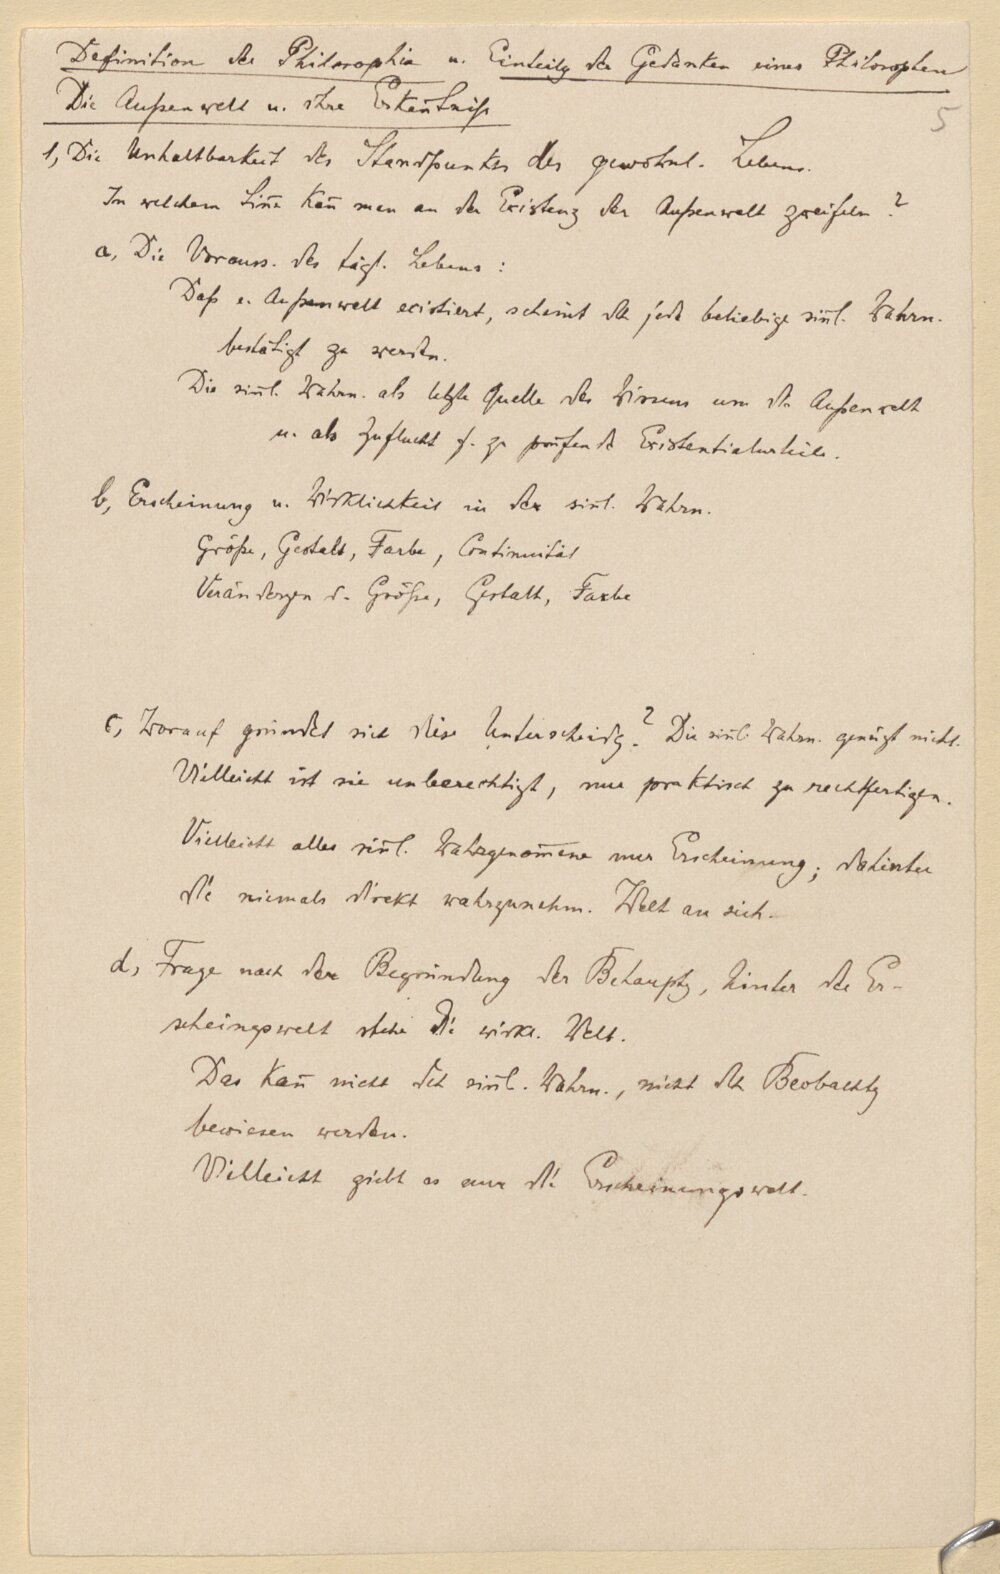 Definition der Philosophie u. Einteilg der Gedanken eines Philosophen
Die Außenwelt u. ihre Erkenntniß
5
1, Die Unhaltbarkeit des Standpunktes des gewöhnl. Lebens.
In welchem Sinne kann man an der Existenz der Außenwelt zweifeln?
a, Die Vorauss. des tägl. Lebens:
Daß e. Außenwelt existiert, scheint dch jede beliebige sinnl. Wahrn.
bestätigt zu werden.
Die sinnl. Wahrn. als letzte Quelle des Wissens um die Außenwelt
u. als Zuflucht f. zu prüfende Existentialurteile.
b, Erscheinung u. Wirklichkeit in der sinnl. Wahrn.
Größe, Gestalt, Farbe, Continuität
Verändergen d. Größe, Gestalt, Farbe
c, Worauf gründet sich diese Unterscheidg? Die sinnl. Wahrn. genügt nicht.
Vielleicht ist sie unberechtigt, nur praktisch zu rechtfertigen.
Vielleicht alles sinnl. Wahrgenommene nur Erscheinung; dahinter
die niemals direkt wahrzunehm. Welt an sich.
d, Frage nach der Begründung der Behauptg, hinter der Er-
scheingswelt stehe die wirkl. Welt.
Das kann nicht dch sinnl. Wahrn., nicht dch Beobachtg
bewiesen werden.
Vielleicht giebt es nur die Erscheinungswelt.